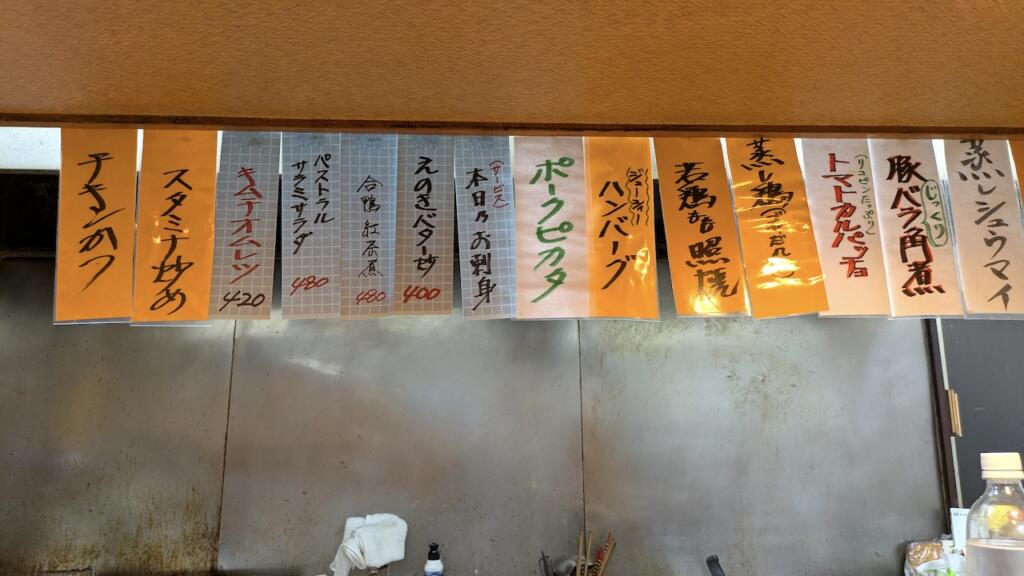 チキンかつ
スタミナ炒め
キムチオムレツ
420
パストラル
サラミサラダ
480
合鴨紅茶煮
480
えのきバター炒
400
(サービス)
本日乃お刺身
ポークピカタ
ジューシー
ハンバーグ
若鶏もも照焼
蒸し鶏の
(リコピンたっぷり)
トマトカルパッチョ
じっくり
豚バラ角煮
蒸しシュウマイ